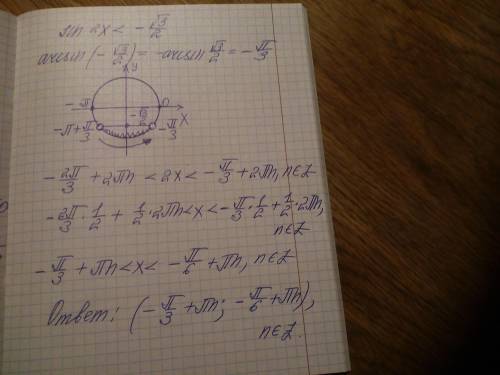 sin 2x < -√3/2
arcsin(-√3/2) = -arcsin √3/2 = -π/3
y
-π 0
x
-√3/2
-π+π/3 -π/3
-2π/3 + 2πn < 2x < -π/3 + 2πn, n∈Z
-2π/3 · 1/2 + 1/2 · 2πn < x < -π/3 · 1/2 + 1/2 · 2πn,
n∈Z
-π/3 + πn < x < -π/6 + πn, n∈Z
Ответ: (-π/3 + πn; -π/6 + πn),
n∈Z.